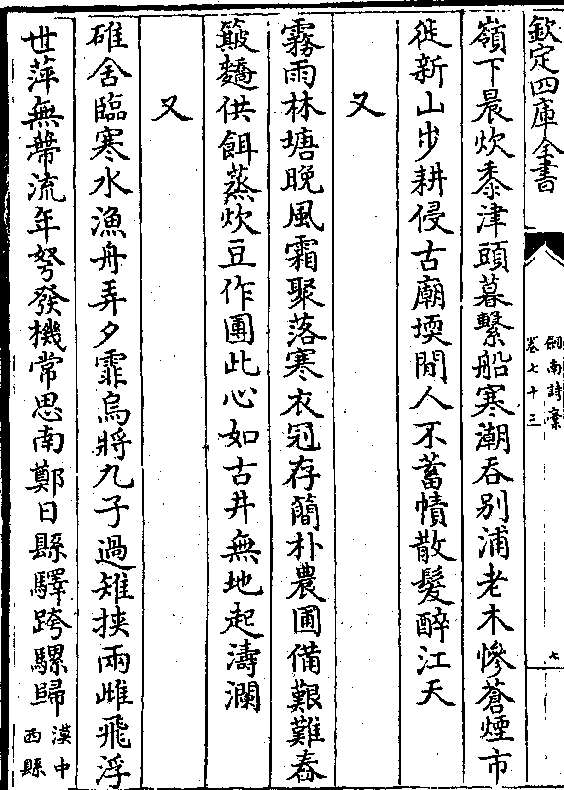 欽定四庫全書
劒南詩藁
卷七十三
七
嶺下晨炊黍津頭暮繫船寒潮吞別浦老木慘蒼煙市
徙新山步耕侵古廟堧閒人不蓄幘散髮醉江天
又
霧雨林塘晚風霜聚落寒衣冠存簡朴農圃備艱難舂
簸麷供餌蒸炊豆作團此心如古井無地起濤瀾
又
碓舍臨寒水漁舟弄夕霏烏將九子過雉挾兩雌飛浮
世萍無蔕流年弩發機常思南鄭日縣驛跨騾歸漢中
西縣